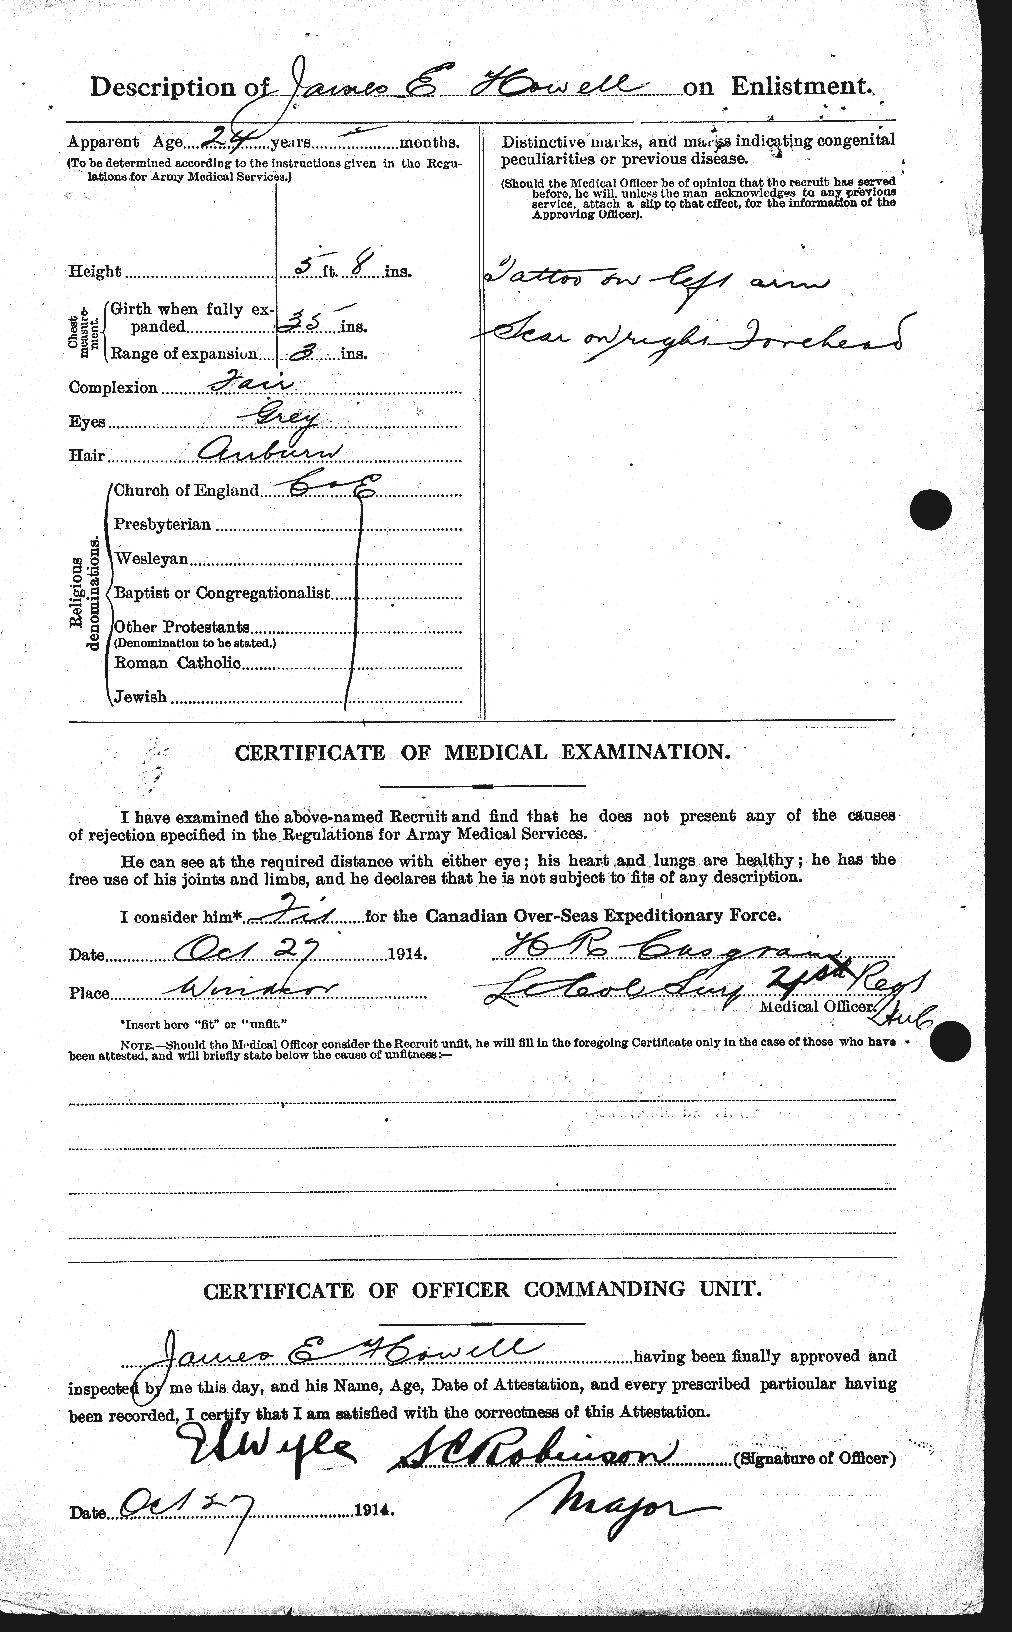 Description of James E Howell on Enlistment.
Apparent Age 24 years months.
(To be determined according to the instructions given in the Regu-
lations for Army Medical Services.)
Height 5 ft. 8 ins.
Chest measure-ment.
Girth when fully ex-
panded 35 ins.
Range of expansion 3 ins.
Complexion Fair
Eyes Grey
Hair Auburn
Religious denominations.
Church of England C of E
Presbyterian
Wesleyan
Baptist or Congregationalist
Other Protestants
(Denomination to be stated.)
Roman Catholic
Jewish
Distinctive marks, and marks indicating congenital
peculiarities or previous disease.
(Should the Medical Officer be of opinion that the recruit has served
before, he will, unless the man acknowledges to any previous
service, attach a slip to that effect, for the information of the
Approving Officer).
Tattoo on left arm
Scar on right Forehead
CERTIFICATE OF MEDICAL EXAMINATION.
I have examined the above-named Recruit and find that he does not present any of the causes
of rejection specified in the Regulations for Army Medical Services.
He can see at the required distance with either eye; his heart and lungs are healthy; he has the
free use of his joints and limbs, and he declares that he is not subject to fits of any description.
I consider him* Fit for the Canadian Over-Seas Expeditionary Force.
Date Oct 27 1914. H R Casgrain
Place Windsor Lt Col Surg 21st Regt
Medical Officer.
*Insert here "fit" or "unfit."
NOTE.—Should the Medical Officer consider the Recruit unfit, he will fill in the foregoing Certificate only in the case of those who have
been attested, and will briefly state below the cause of unfitness:—
CERTIFICATE OF OFFICER COMMANDING UNIT.
James E Howell having been finally approved and
inspected by me this day, and his Name, Age, Date of Attestation, and every prescribed particular having
been recorded, I certify that I am satisfied with the correctness of this Attestation.
ES Wigle S C Robinson (Signature of Officer)
Date Oct 27 1914. Major